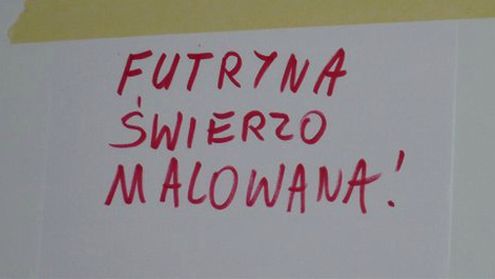 FUTRYNA
ŚWIERZO
MALOWANA!